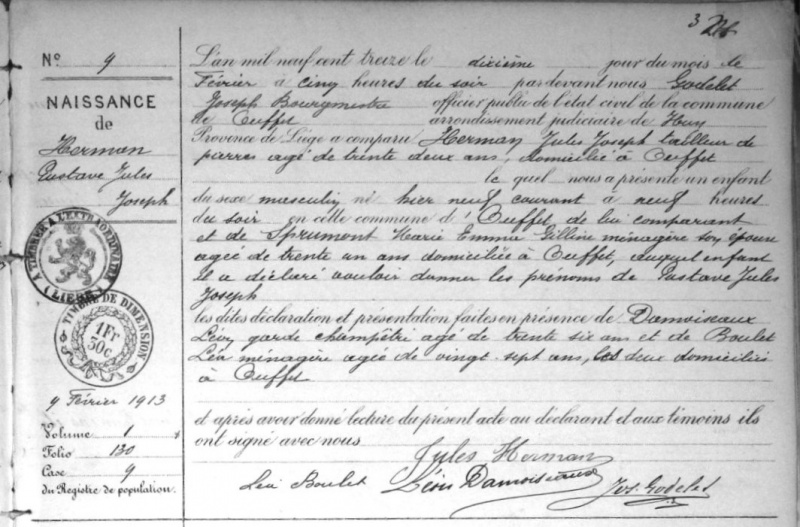 3
Nº 9
NAISSANCE
de
Herman
Gustave Jules
Joseph
A TIMBRER A L'EXTRAORDINAIRE
(LIEGE)
TIMBRE DE DIMENSION
1Fr
30c
9 Février 1913
Volume 1
Folio 130
Case 9
du Registre de population.
L'an mil neuf cent treize le dixième jour du mois de
Février à cinq heures du soir pardevant nous Godelet
Joseph Bourgmestre officier public de l'état civil de la commune
de Ouffet arrondissement judiciaire de Huy
Province de Liége a comparu Herman Jules Joseph tailleur de
pierres agé de trente deux ans, domicilié à Ouffet
le quel nous a présenté un enfant
du sexe masculin né hier neuf courant à neuf heures
du soir en cette commune d'Ouffet, de lui comparant
et de Sprumont Marie Emma Gilline ménagère son épouse
agée de trente un ans domiciliée à Ouffet, auquel enfant
il a déclaré vouloir donner les prénoms de Gustave Jules
Joseph
les dites déclaration et présentation faites en présence de Damoiseaux
Léon garde champêtre agé de trente six ans et de Boulet
Léa ménagère agée de vingt sept ans, les deux domiciliés
à Ouffet
et après avoir donné lecture du présent acte au déclarant et aux témoins ils
ont signé avec nous
Jules Herman
Léa Boulet Léon Damoiseaux Jos. Godelet